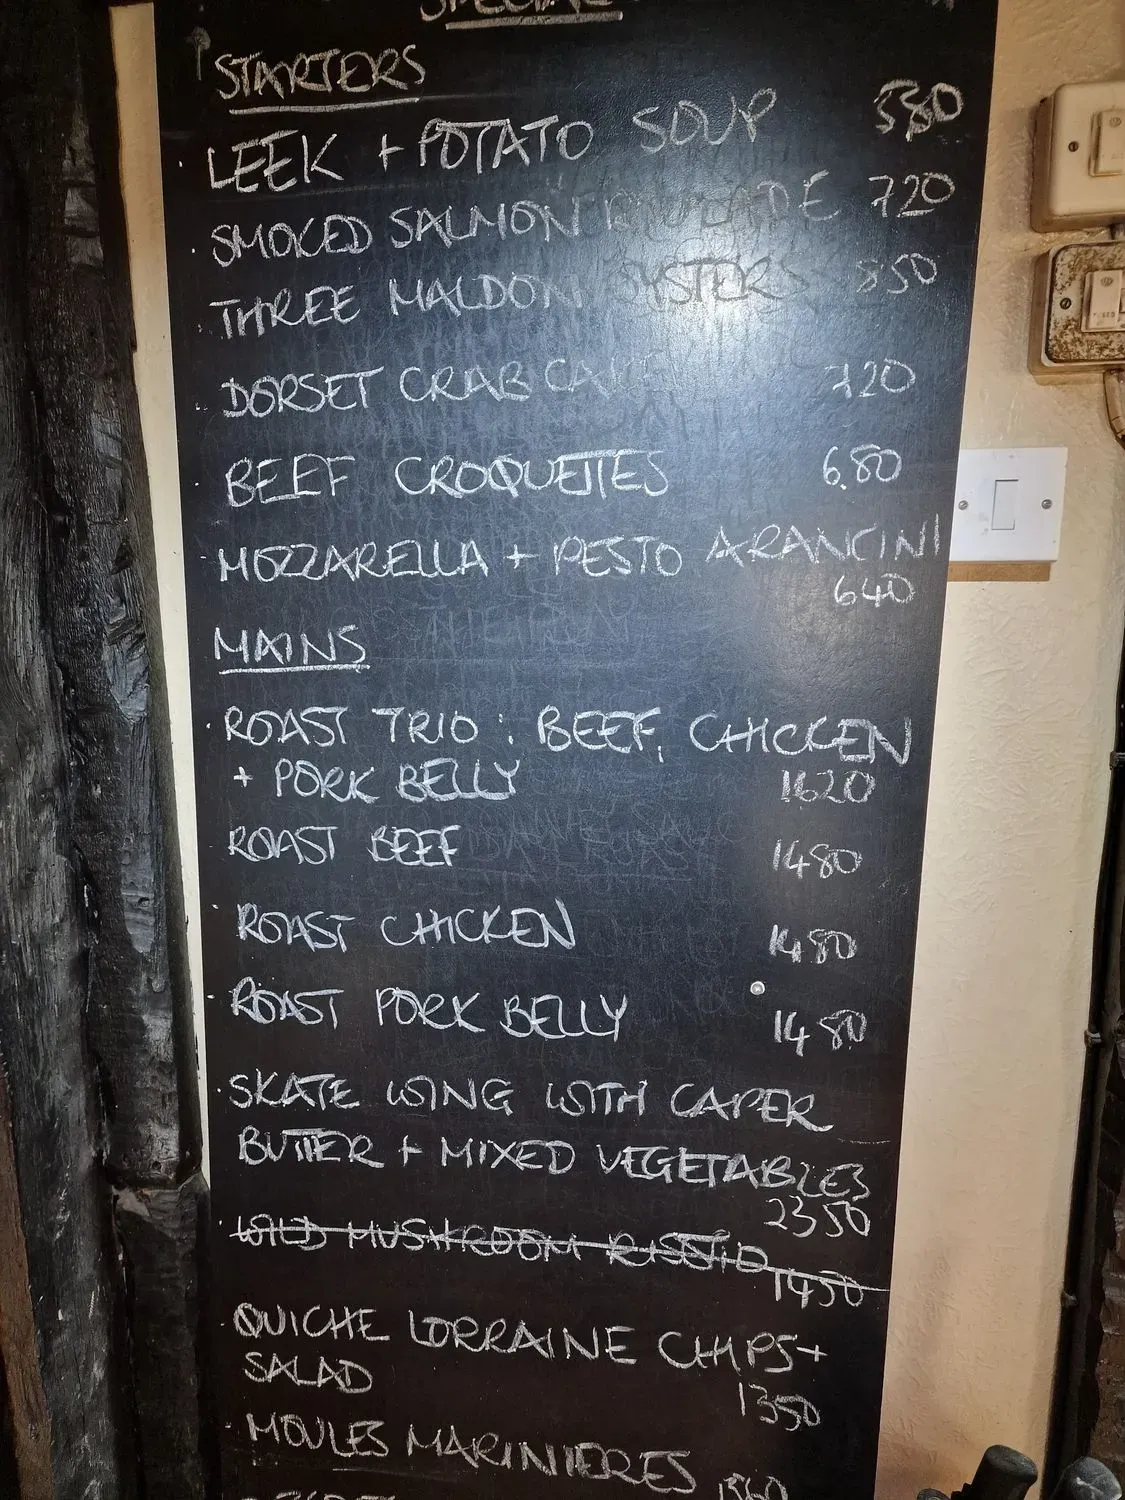 SPECIALS
STARTERS
· LEEK + POTATO SOUP 580
· SMOKED SALMON ROULADE 720
· THREE MALDON OYSTERS 850
· DORSET CRAB CAKE 720
· BEEF CROQUETTES 6.80
· MOZZARELLA + PESTO ARANCINI
640
MAINS
· ROAST TRIO : BEEF, CHICKEN
+ PORK BELLY 1620
· ROAST BEEF 1480
· ROAST CHICKEN 1480
· ROAST PORK BELLY 1480
· SKATE WING WITH CAPER
BUTTER + MIXED VEGETABLES
2350
· WILD MUSHROOM RISSTO
1450
· QUICHE LORRAINE CHIPS +
SALAD 1350
· MOULES MARINIERES